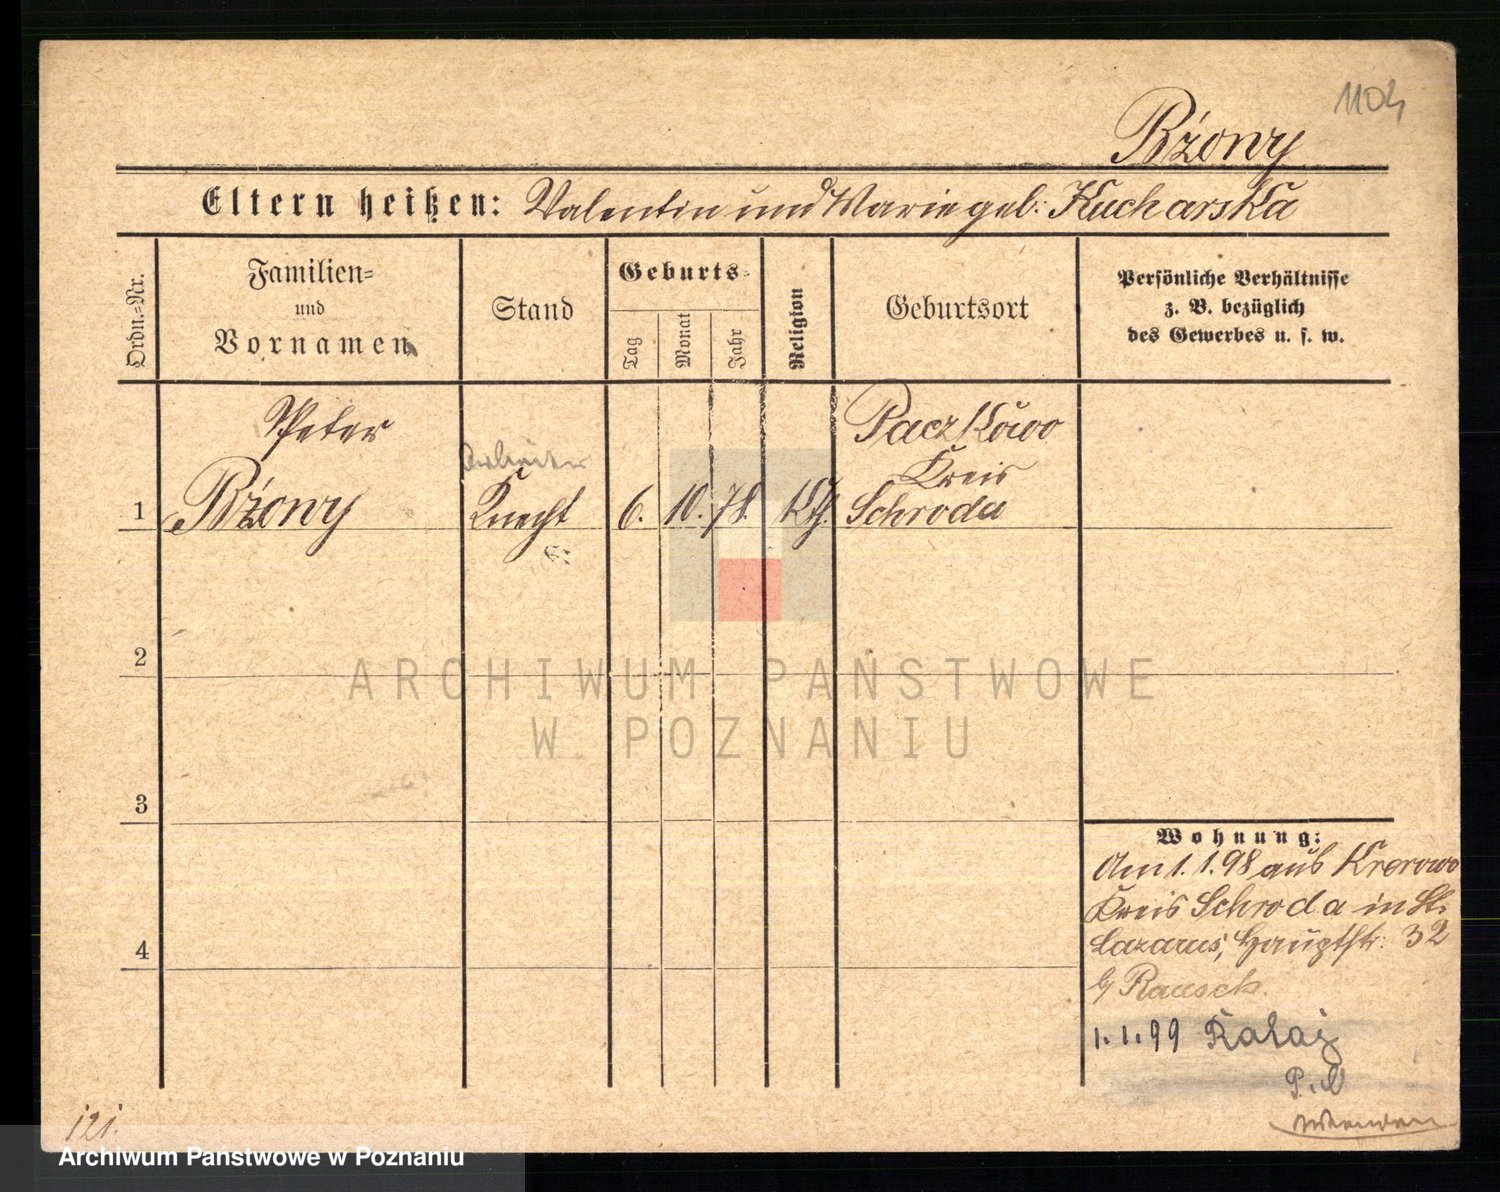 1104
Bżony
Eltern heißen: Valentin und Marie geb: Kucharska
Ordn.-Nr.
Familien-
und
Vornamen
Stand
Geburts-
Tag
Monat
Jahr
Religion
Geburtsort
Persönliche Verhältnisse
z. B. bezüglich
des Gewerbes u. s. w.
Peter
Paczkowo
Arbeiter
Kreis
1 Bżony Knecht 6. 10. 78. Kth. Schroda
2
ARCHIWUM PAŃSTWOWE
W POZNANIU
3
Wohnung:
Am 1.1.98 aus Krerowo
Kreis Schroda in St.
Lazarus, Hauptstr. 32
b/ Rausch.
4
1.1.99
121.
Archiwum Państwowe w Poznaniu